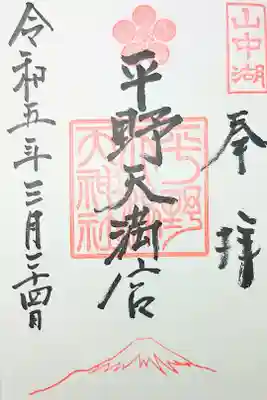 山中湖
奉拝
平野天満宮
平野
神社
令和五年三月二十四日